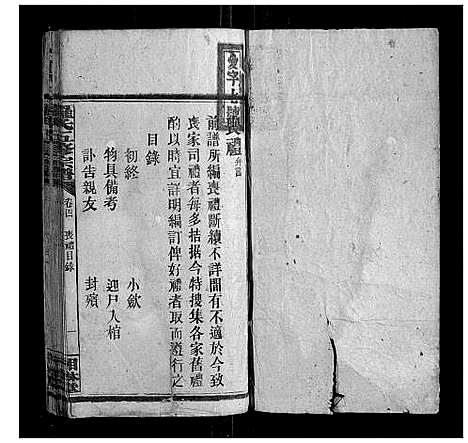 喪禮
前譜所編喪禮斷續不詳間有不適於今致
喪家司禮者每多拮据今特搜集各家舊禮
酌以時宜詳明編訂俾好禮者取而遵行之
目錄
初終 小歛
物具備考 迎尸入棺
訃告親友 封殯
卷四 喪禮目錄 一